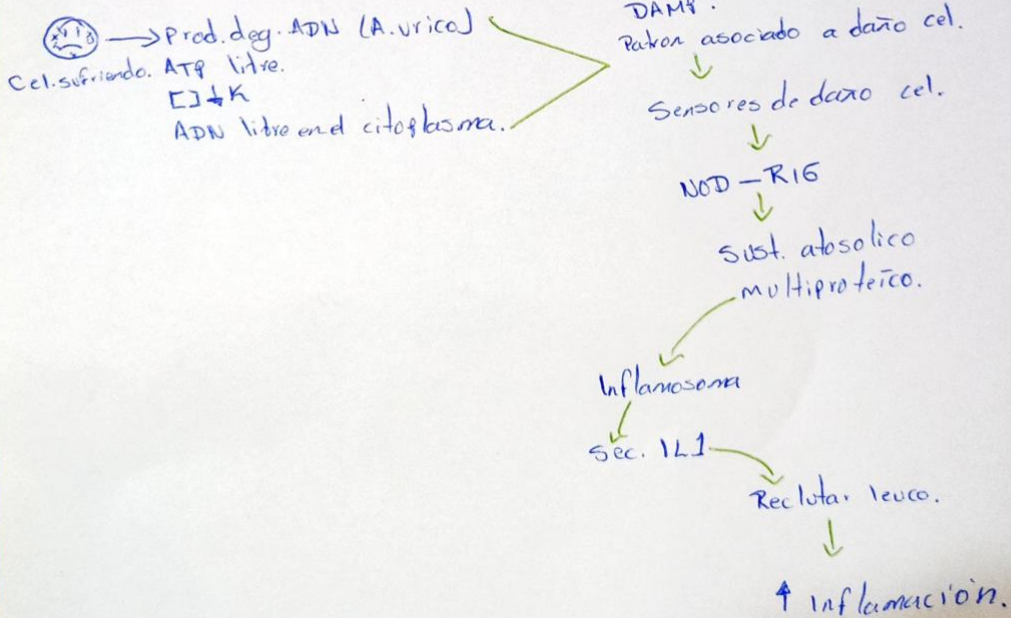 Prod. deg. ADN (A. urico)
Cel. sufriendo. ATP libre.
[] ↓ K
ADN libre en el citoplasma.
DAMP.
Patron asociado a daño cel.
Sensores de daño cel.
NOD – RIG
Sust. citosolico
multiproteico.
Inflamosoma
Sec. IL1
Reclutar leuco.
↑ Inflamación.